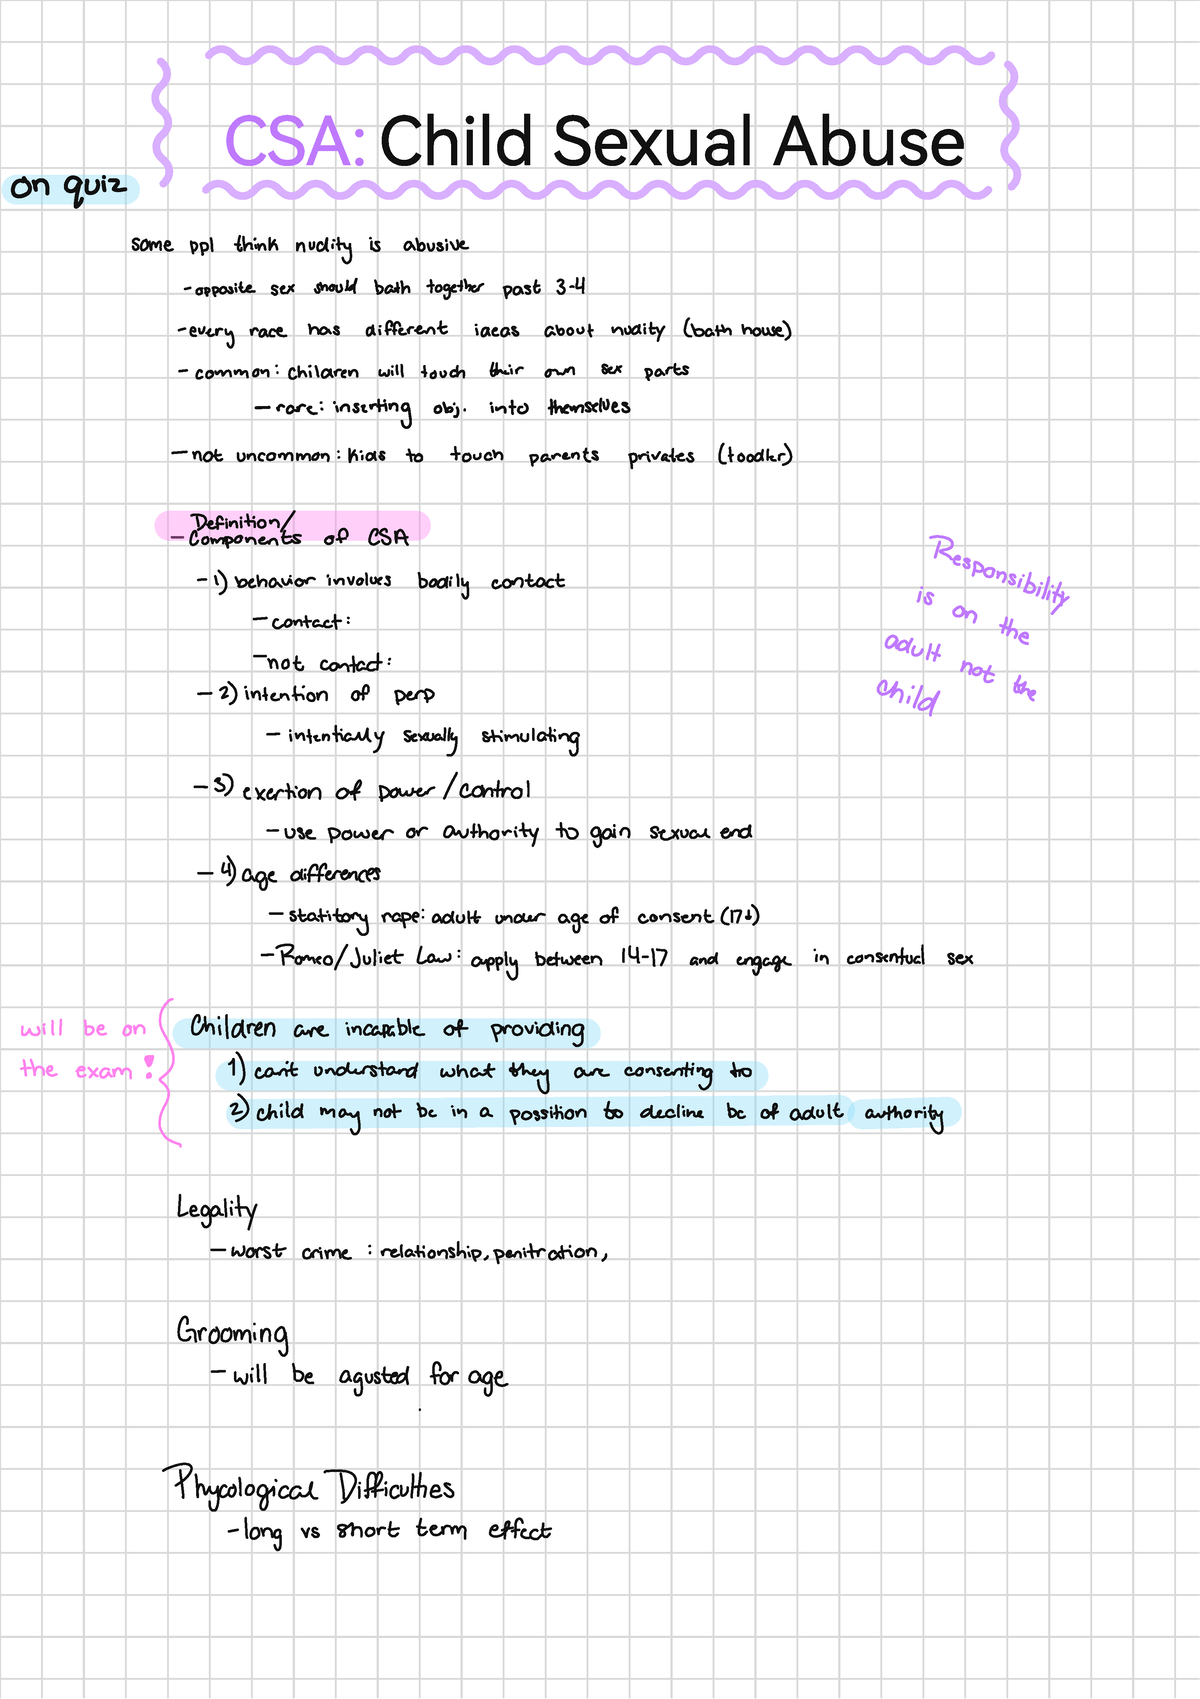 CSA: Child Sexual Abuse
on quiz
some ppl think nudity is abusive
- opposite sex should bath together past 3-4
- every race has different ideas about nudity (bath house)
- common: children will touch their own sex parts
- rare: inserting obj. into themselves
- not uncommon: kids to touch parents privates (toodler)
Definition/
- Components of CSA
- 1) behavior involves bodily contact
- contact:
- not contact:
- 2) intention of perp
- intentially sexually stimulating
- 3) exertion of power/control
- use power or authority to gain sexual end
- 4) age differences
- statitory rape: adult under age of consent (17↓)
- Romeo/Juliet Law: apply between 14-17 and engage in consentual sex
Responsibility
is on the
adult not the
child
will be on
the exam!
Children are incapable of providing
1) can't understand what they are consenting to
2) child may not be in a possition to decline bc of adult authority
Legality
- worst crime: relationship, penitration,
Grooming
- will be agusted for age
Phycological Difficulties
- long vs short term effect